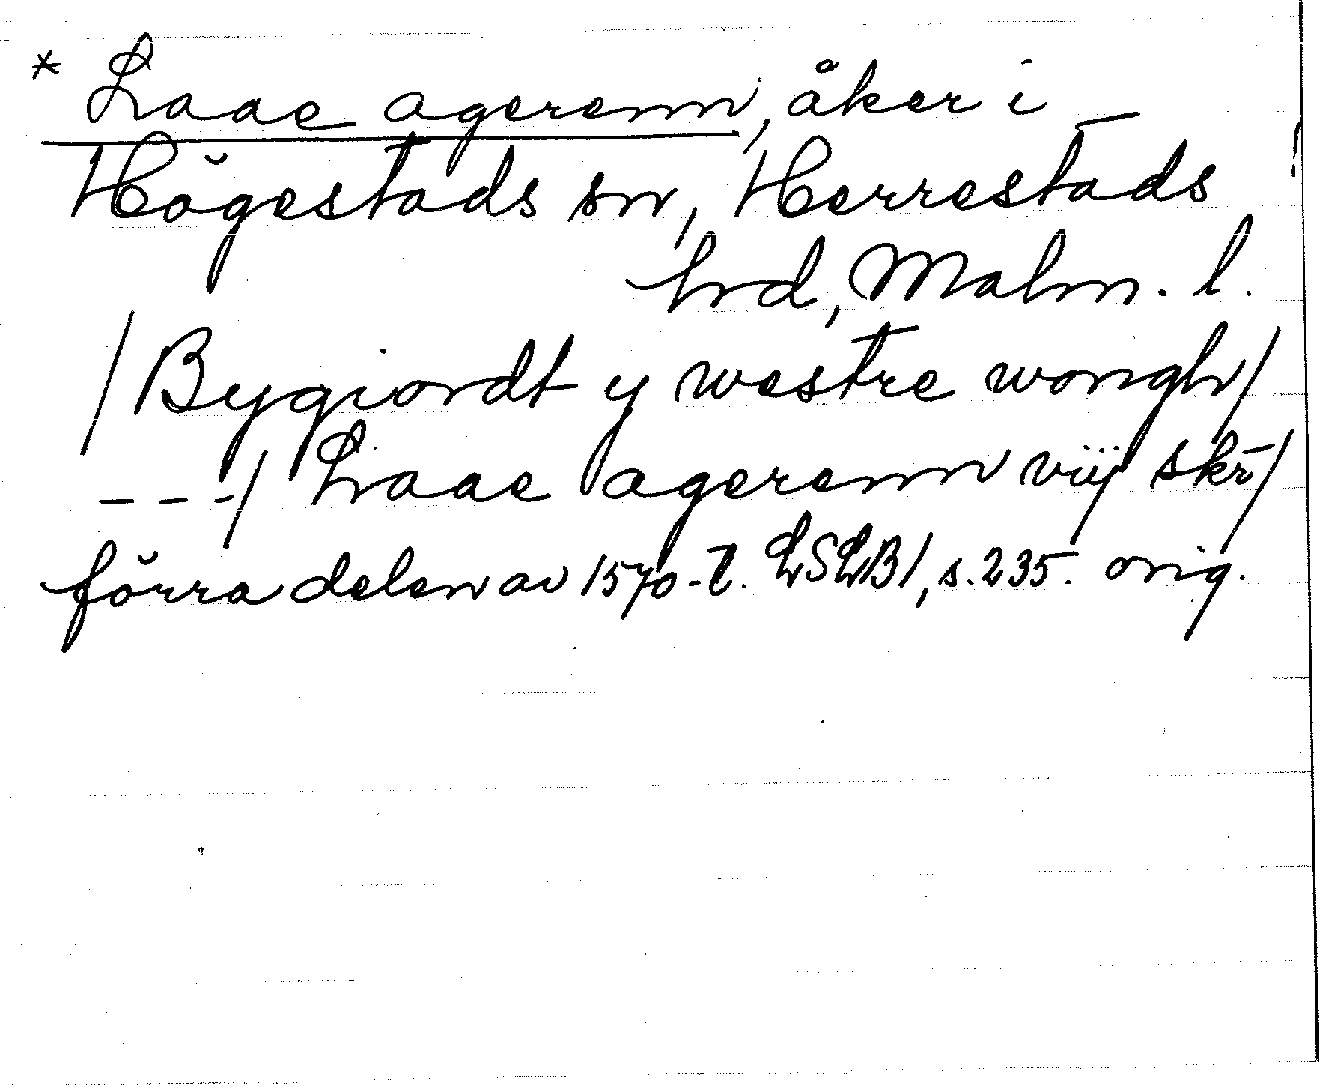 * Laae agerenn, åker i
Högestads sn, Herrestads
hrd, Malm. l.
/Bygiordt y westre wongh/
---/ Laae agerenn viij skr/
förra delen av 1570-t. LSLB1, s. 235. orig.